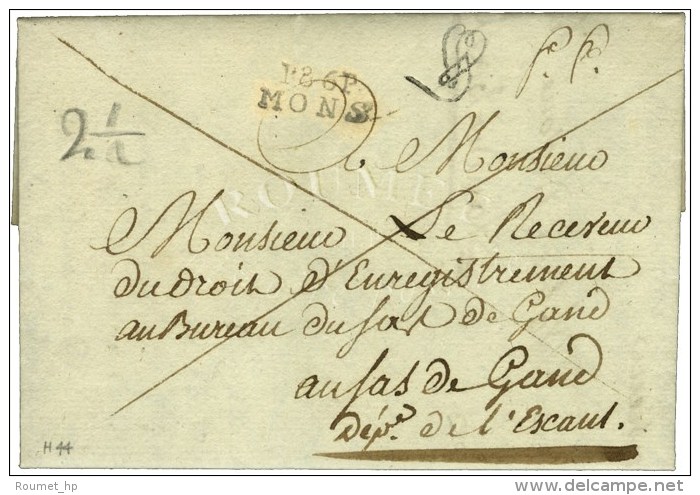 P.86P.
MONS
P. P.
2 1/2
A Monsieur
Monsieur Le Receveur
du droit d'Enregistrement
au Bureau du Sas de Gand
au Sas de Gand
Dép.e de l'Escaut.
H 44
ROUMET
Roumet_hp
delcampe.net